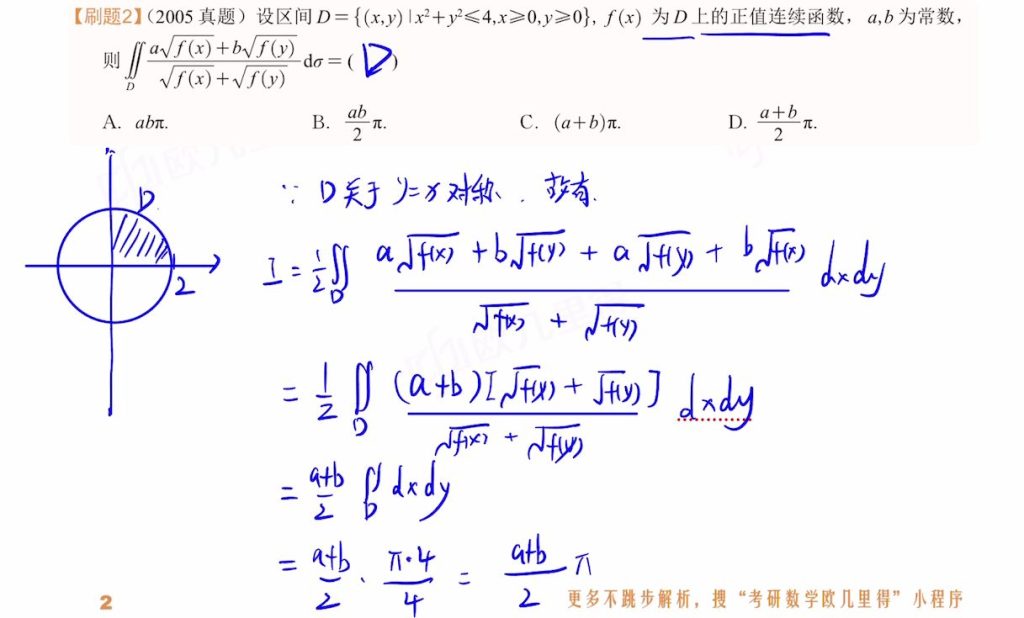 【刷题2】(2005真题)设区间D={(x,y)|x²+y²≤4,x≥0,y≥0},f(x)为D上的正值连续函数,a,b为常数,
则∬_D (a√f(x)+b√f(y))/(√f(x)+√f(y)) dσ=( D )
A. abπ. B. ab/2 π. C. (a+b)π. D. (a+b)/2 π.
D
2
∵ D关于y=x对称、故有.
I = 1/2 ∬_D (a√f(x) + b√f(y) + a√f(y) + b√f(x))/(√f(x) + √f(y)) dxdy
= 1/2 ∬_D (a+b)[√f(x) + √f(y)]/(√f(x) + √f(y)) dxdy
= (a+b)/2 ∬_D dxdy
= (a+b)/2 · (π·4)/4 = (a+b)/2 π
2 更多不跳步解析,搜“考研数学欧几里得”小程序